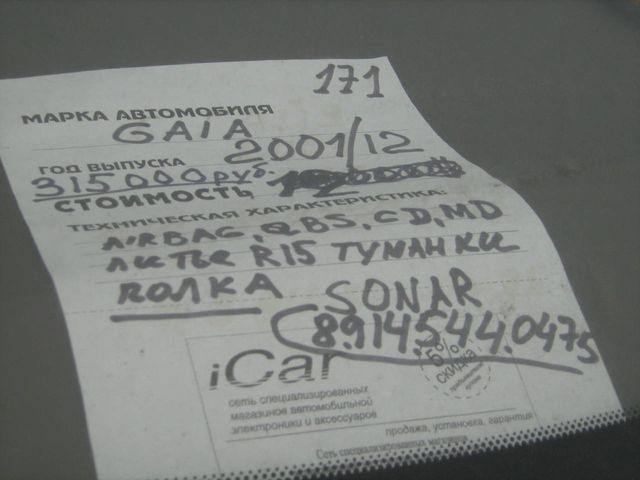 171
МАРКА АВТОМОБИЛЯ
GAIA
ГОД ВЫПУСКА 2001/12
315000руб.
СТОИМОСТЬ
ТЕХНИЧЕСКАЯ ХАРАКТЕРИСТИКА:
AIRBAG, QBS, CD, MD
литье R15 ТУМАНКИ
ПОЛКА SONAR
8.914.544.0475
iCar
5%
скидка
сеть специализированных
магазинов автомобильной
электроники и аксессуаров
продажа, установка, гарантия
Сеть специализированных магазинов